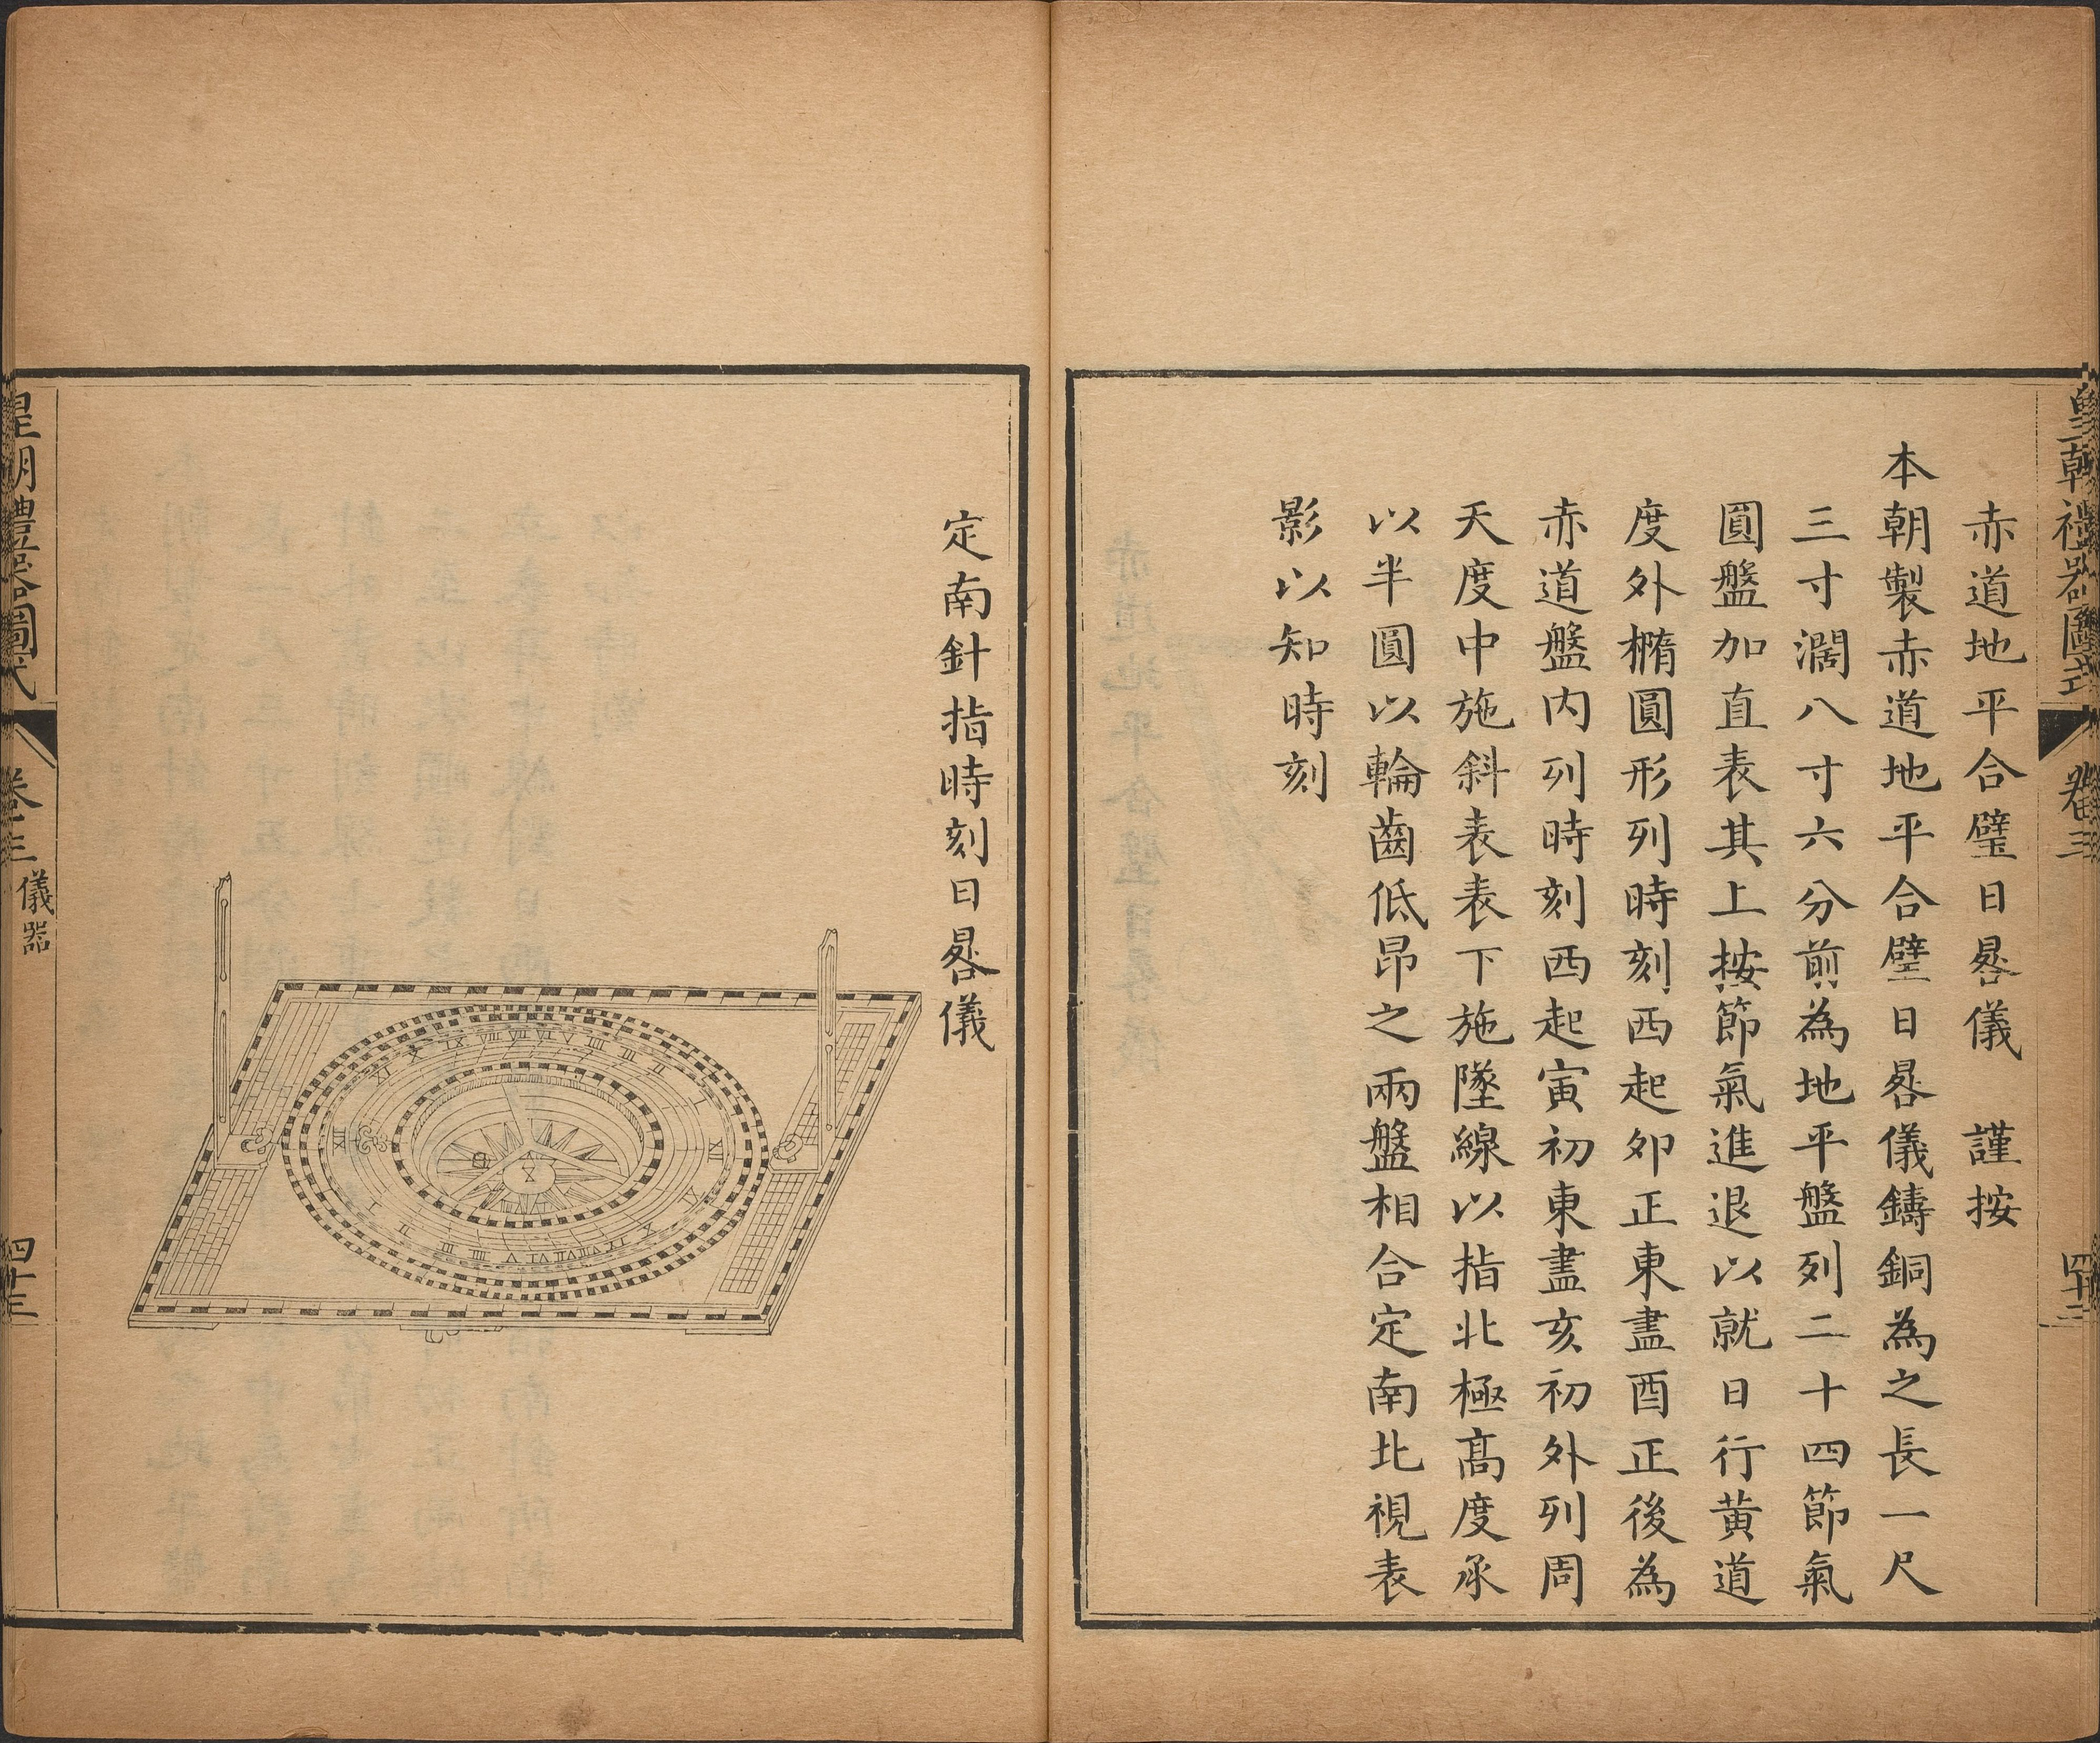 皇朝禮器圖式
卷三
四十三
赤道地平合璧日晷儀　謹按
本朝製赤道地平合璧日晷儀鑄銅為之長一尺
三寸濶八寸六分前為地平盤列二十四節氣
圓盤加直表其上按節氣進退以就日行黃道
度外橢圓形列時刻西起卯正東盡酉正後為
赤道盤內列時刻西起寅初東盡亥初外列周
天度中施斜表表下施墜線以指北極高度承
以半圓以輪齒低昂之兩盤相合定南北視表
影以知時刻
定南針指時刻日晷儀
皇朝禮器圖式
卷三
儀器
四十三